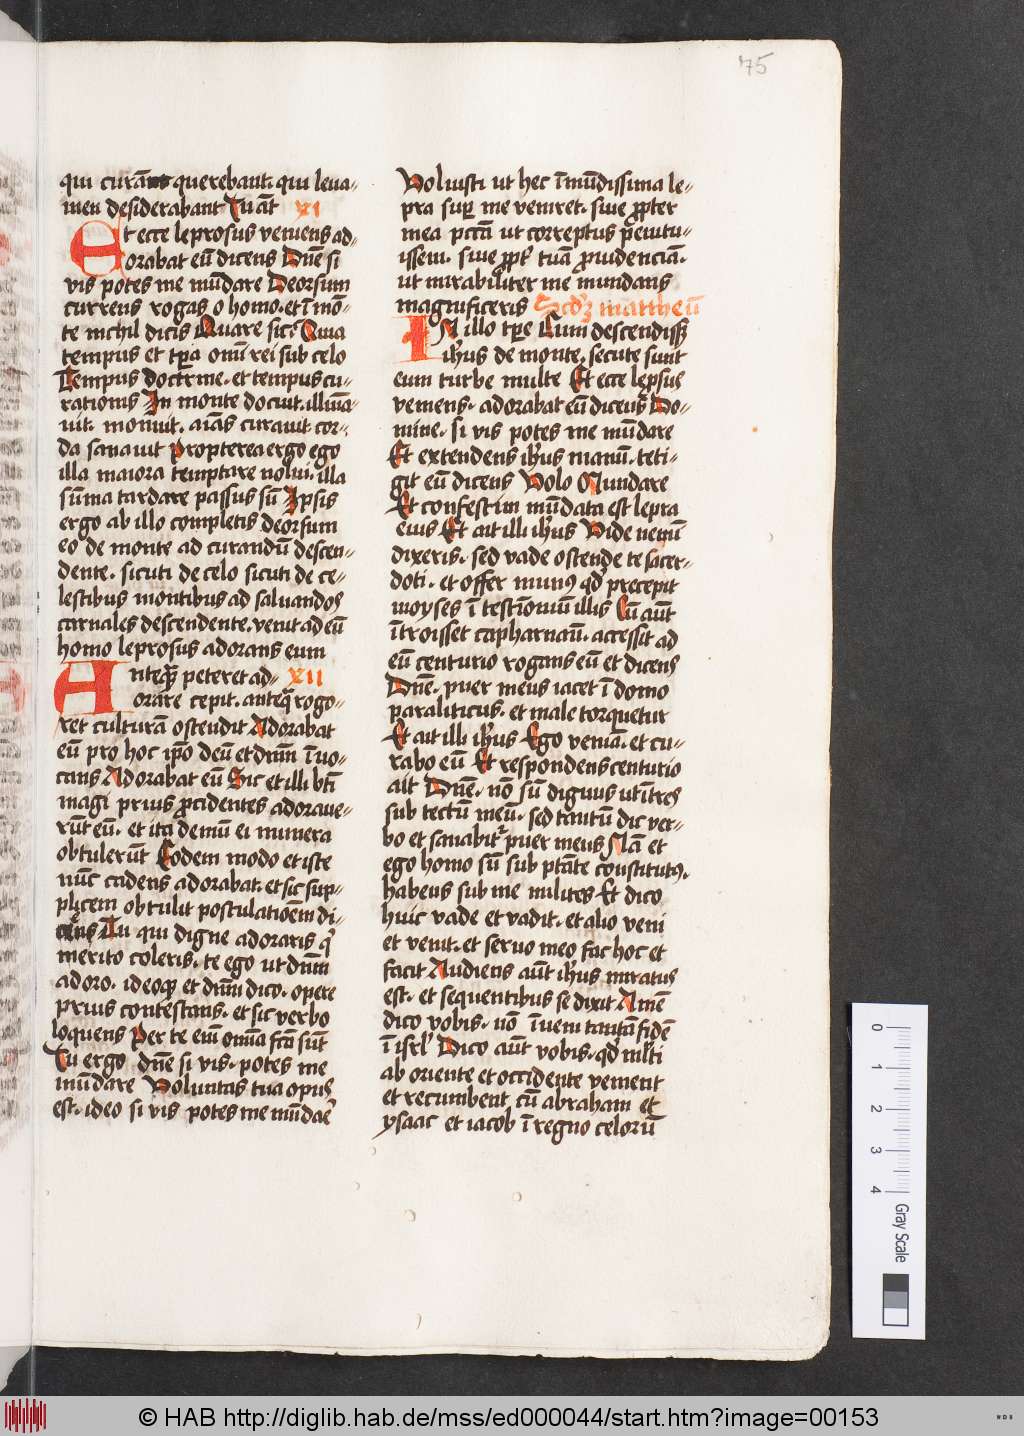 75
qui curam querebant. qui leua-
men desiderabant Tu aūt XI
Et ecce leprosus veniens ad-
orabat eū dicens Dn̄e si
vis potes me mūdare Deorsum
currens rogas o homo. et ī mō-
te nichil dicis Quare sic? Quia
tempus et tp̄a omī rei sub celo
Tempus doctrine. et tempus cu-
rationis In monte docuit. illumīa-
uit. monuit. aīas curauit cor-
da sanauit Propterea ergo ego
illa maiora temptare nolui. illa
sūma tardare passus sū Ipsis
ergo ab illo completis deorsum
eo de monte ad curandū descen-
dente. sicuti de celo sicuti de ce-
lestibus montibus ad saluandos
carnales descendente. venit ad eū
homo leprosus adorans eum
Anteqꝫ peteret ad- XII
orare cepit. anteqꝫ rogo-
ret culturā ostendit Adorabat
eū pro hoc ip̄o deū et dn̄m īuo-
cans Adorabat eū Sic et illi bt̄i
magi prius ꝓcidentes adoraue-
rūt eū. et ita demū ei munera
obtulerūt Eodem modo et iste
nūc cadens adorabat. et sic sup-
plicem obtulit postulationēm di-
cens Tu qui digne adoraris q̄
merito coleris. te ego ut dn̄m
adoro. ideoqꝫ et dn̄m dico. opere
prius contestans. et sic verbo
loquens Per te eni om̄ia fc̄a sūt
Tu ergo dn̄e si vis. potes me
mūdare Voluntas tua opus
est. ideo si vis potes me mūdare
Voluisti ut hec īmūdissima le-
pra sup me veniret. siue ꝓpter
mea pctā ut correptus penitu-
issem. siue ꝓpt̄ tuā prouidenciā.
ut mirabiliter me mundans
magnificeris Scdꝫ mattheū
IN illo tp̄re Cum descendissꝫ
ihūs de monte. secute sunt
eum turbe multe Et ecce lep̄sus
veniens. adorabat eū dicens Do-
mine. si vis potes me mūdare
Et extendens ihūs manū. teti-
git eū dicens Volo Mundare
Et confestim mūdata est lepra
eius Et ait illi ihūs Vide nemī
dixeris. sed vade ostende te sacer-
doti. et offer munus qd̄ precepit
moyses ī testiōnium illis Cū aūt
ītroisset capharnaū. accessit ad
eū centurio rogans eū et dicens
Dn̄e. puer meus iacet ī domo
paraliticus. et male torquetur
Et ait illi ihūs Ego veniā. et cu-
rabo eū Et respondens centurio
ait Dn̄e. nō sū dignus ut ītres
sub tectū meū. sed tantū dic ver-
bo et sanabit̄ puer meus Nā et
ego homo sū sub ptāte constitutus.
habens sub me milites Et dico
huic vade et vadit. et alio veni
et venit. et seruo meo fac hoc et
facit Audiens aūt ihūs miratus
est. et sequentibus se dixit Amē
dico vobis. nō īueni tantā fidē
ī isrl̄ Dico aūt vobis. qd̄ mlti
ab oriente et occidente venient
et recumbent cū abraham et
ysaac et iacob ī regno celorū
0 1 2 3 4 Gray Scale
© HAB http://diglib.hab.de/mss/ed000044/start.htm?image=00153